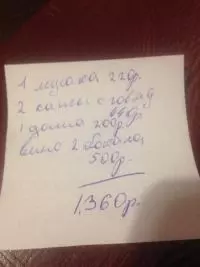 1 мусака 220р.
2 с говяд
440р.
1 долма 200р.
вино 2 бокала
500р.
1,360р.